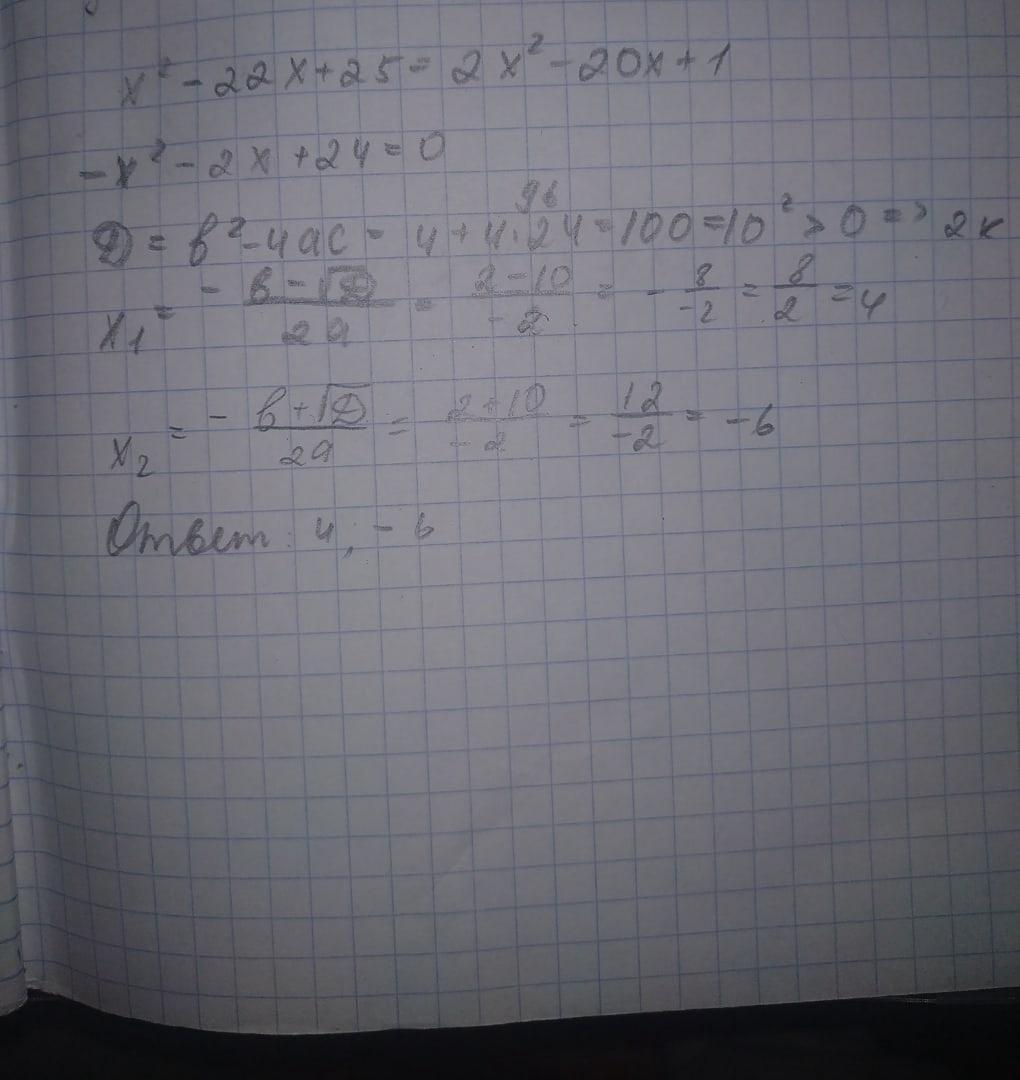 x² - 22x + 25 = 2x² - 20x + 1
-x² - 2x + 24 = 0
96
D = b² - 4ac = 4 + 4·24 = 100 = 10² > 0 => 2к
x₁ = -\frac{b - √D}{2a} = \frac{2 - 10}{-2} = -\frac{8}{-2} = \frac{8}{2} = 4
x₂ = -\frac{b + √D}{2a} = \frac{2 + 10}{-2} = \frac{12}{-2} = -6
Ответ: 4; -6